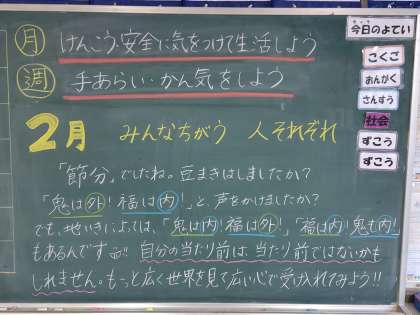 月 けんこう・安全に気をつけて生活しよう
週 手あらい・かん気をしよう
2月 みんなちがう 人それぞれ
「節分」でしたね。豆まきはしましたか?
「鬼は外! 福は内!」と、声をかけましたか?
でも、地いきによっては、「鬼は内! 福は外!」「福は内! 鬼も内!」
もあるんです 自分の当たり前は、当たり前ではないかも
しれません。もっと広く世界を見て広い心で受け入れてみよう!!
今日のよてい
こくご
おんがく
さんすう
社会
ずこう
ずこう